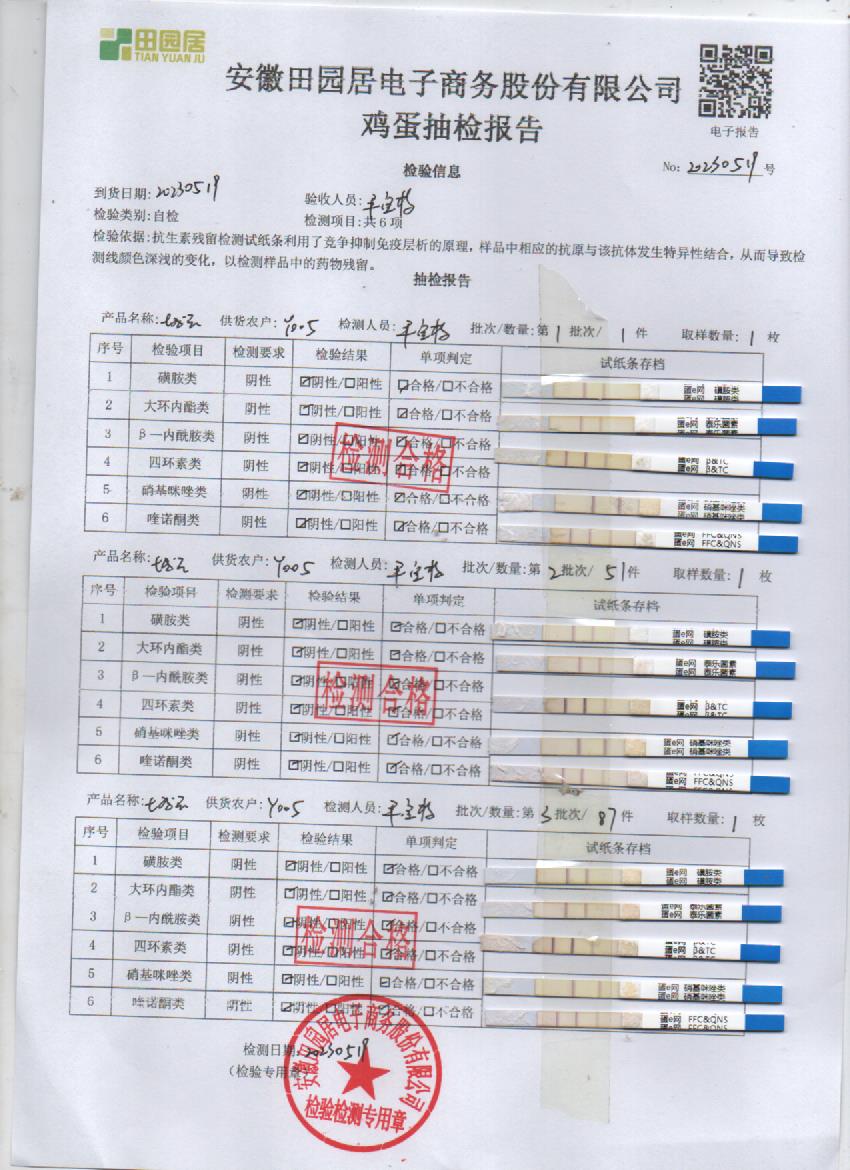 田园居
TIAN YUAN JU
安徽田园居电子商务股份有限公司
鸡蛋抽检报告
电子报告
检验信息
No: 20230519 号
到货日期: 20230519 验收人员:
检验类别: 自检 检测项目: 共6项
检验依据: 抗生素残留检测试纸条利用了竞争抑制免疫层析的原理，样品中相应的抗原与该抗体发生特异性结合，从而导致检
测线颜色深浅的变化，以检测样品中的药物残留。
抽检报告
产品名称: 供货农户: Y005 检测人员: 批次/数量: 第1批次/ 1件 取样数量: 1 枚
序号 检验项目 检测要求 检验结果 单项判定 试纸条存档
1 磺胺类 阴性 ☑阴性/□阳性 ☑合格/□不合格 蛋e网 磺胺类
2 大环内酯类 阴性 ☑阴性/□阳性 ☑合格/□不合格 蛋e网 泰乐菌素
3 β一内酰胺类 阴性 ☑阴性/□阳性 ☑合格/□不合格 蛋e网 β&TC
4 四环素类 阴性 ☑阴性/□阳性 ☑合格/□不合格
5 硝基咪唑类 阴性 ☑阴性/□阳性 ☑合格/□不合格 蛋e网 硝基咪唑类
6 喹诺酮类 阴性 ☑阴性/□阳性 ☑合格/□不合格 蛋e网 FFC&QNS
检测合格
产品名称: 供货农户: Y005 检测人员: 批次/数量: 第2批次/ 51件 取样数量: 1 枚
序号 检验项目 检测要求 检验结果 单项判定 试纸条存档
1 磺胺类 阴性 ☑阴性/□阳性 ☑合格/□不合格 蛋e网 磺胺类
2 大环内酯类 阴性 ☑阴性/□阳性 ☑合格/□不合格 蛋e网 泰乐菌素
3 β一内酰胺类 阴性 ☑阴性/□阳性 ☑合格/□不合格
4 四环素类 阴性 ☑阴性/□阳性 ☑合格/□不合格 蛋e网 β&TC
5 硝基咪唑类 阴性 ☑阴性/□阳性 ☑合格/□不合格 蛋e网 硝基咪唑类
6 喹诺酮类 阴性 ☑阴性/□阳性 ☑合格/□不合格 蛋e网 FFC&QNS
检测合格
产品名称: 供货农户: Y005 检测人员: 批次/数量: 第3批次/ 87件 取样数量: 1 枚
序号 检验项目 检测要求 检验结果 单项判定 试纸条存档
1 磺胺类 阴性 ☑阴性/□阳性 ☑合格/□不合格 蛋e网 磺胺类
2 大环内酯类 阴性 ☑阴性/□阳性 ☑合格/□不合格 蛋e网 泰乐菌素
3 β一内酰胺类 阴性 ☑阴性/□阳性 ☑合格/□不合格
4 四环素类 阴性 ☑阴性/□阳性 ☑合格/□不合格 蛋e网 β&TC
5 硝基咪唑类 阴性 ☑阴性/□阳性 ☑合格/□不合格 蛋e网 硝基咪唑类
6 喹诺酮类 阴性 ☑阴性/□阳性 ☑合格/□不合格 蛋e网 FFC&QNS
检测合格
检测日期: 20230519
（检验专用章）
安徽田园居电子商务股份有限公司
检验检测专用章